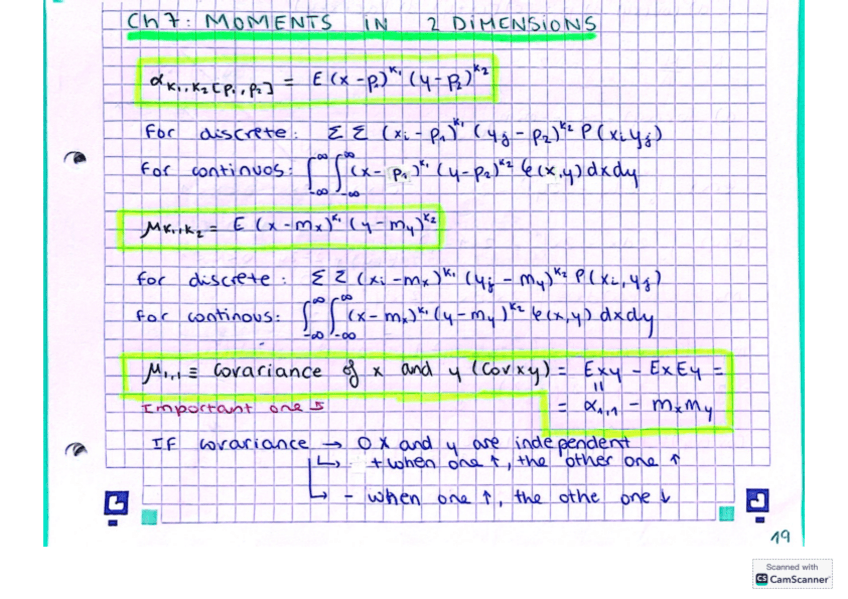 Ch 7: MOMENTS IN 2 DIMENSIONS
α K₁,K₂[P₁,P₂] = E (x - p₁)^K₁ (y - p₂)^K₂
For discrete: Σ Σ (xi - p₁)^K₁ (yj - p₂)^K₂ P(xi yj)
For continuos: ∫_-∞^∞ ∫_-∞^∞ (x - p₁)^K₁ (y - p₂)^K₂ φ(x,y) dx dy
μ K₁,K₂ = E (x - mx)^K₁ (y - my)^K₂
For discrete: Σ Σ (xi - mx)^K₁ (yj - my)^K₂ P(xi, yj)
For continous: ∫_-∞^∞ ∫_-∞^∞ (x - mx)^K₁ (y - my)^K₂ φ(x,y) dx dy
μ₁,₁ ≡ covariance of x and y (cov xy) = Exy - ExEy =
Important one = α₁,₁ - mx my
IF covariance → 0 x and y are independent
↳ + when one ↑, the other one ↑
↳ - when one ↑, the othe one ↓
19
Scanned with
CS CamScanner